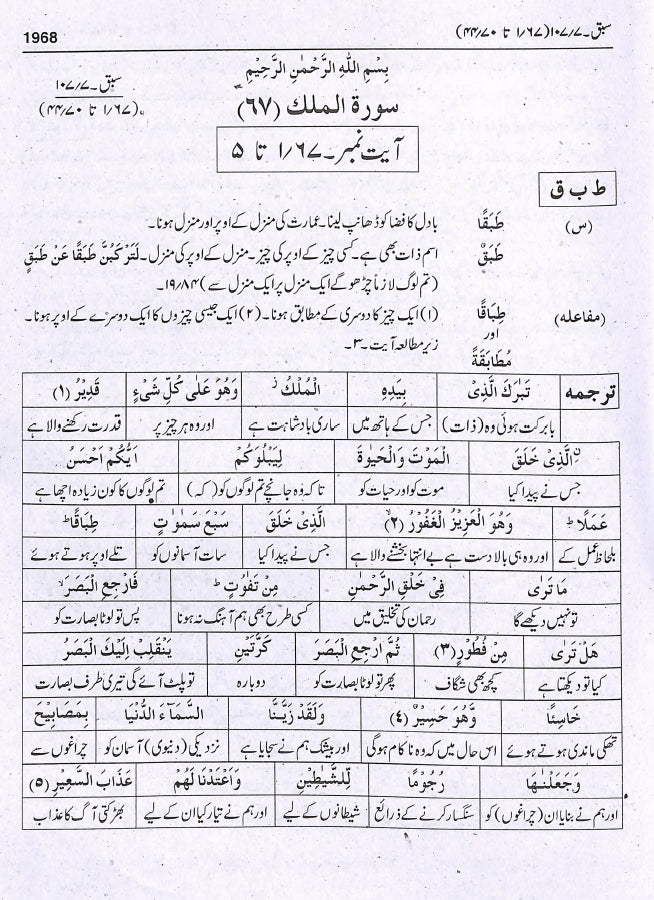 سبق۔۱۰۷/۷(۱/۶۷ تا ۴۴/۷۰)
1968
بِسْمِ اللهِ الرَّحْمٰنِ الرَّحِيْمِ
سورة الملك (۶۷)
سبق۔۱۰۷/۷
(۱/۶۷ تا ۴۴/۷۰)
آیت نمبر۔۱/۶۷ تا ۵
ط ب ق
(س) طَبَقًا بادل کا فضا کو ڈھانپ لینا۔عمارت کی منزل کے اوپر اور منزل ہونا۔
طَبَقٌ اسم ذات بھی ہے۔کسی چیز کے اوپر کی چیز۔منزل کے اوپر کی منزل۔لَتَرْكَبُنَّ طَبَقًا عَنْ طَبَقٍ
(تم لوگ لازماً چڑھو گے ایک منزل پر ایک منزل سے) ۱۹/۸۴
(مفاعلہ) طِبَاقًا (۱) ایک چیز کا دوسری کے مطابق ہونا۔(۲) ایک جیسی چیزوں کا ایک دوسرے کے اوپر ہونا۔
اور
زیر مطالعہ آیت۔۳۔
مُطَابَقَةً
ترجمہ تَبٰرَكَ الَّذِىْ بِيَدِهِ الْمُلْكُ ز وَهُوَ عَلٰى كُلِّ شَىْءٍ قَدِيْرُ (۱)
بابرکت ہوئی وہ (ذات) جس کے ہاتھ میں ساری بادشاہت ہے اور وہ ہر چیز پر قدرت رکھنے والا ہے
الَّذِىْ خَلَقَ الْمَوْتَ وَالْحَيٰوةَ لِيَبْلُوَكُمْ اَيُّكُمْ اَحْسَنُ
جس نے پیدا کیا موت کو اور حیات کو تا کہ وہ جانچے تم لوگوں کو (کہ) تم لوگوں کا کون زیادہ اچھا ہے
عَمَلًا ط وَهُوَ الْعَزِيْزُ الْغَفُوْرُ (۲) الَّذِىْ خَلَقَ سَبْعَ سَمٰوٰتٍ طِبَاقًا ط
بلحاظ عمل کے اور وہ ہی بالا دست ہے بے انتہا بخشنے والا ہے جس نے پیدا کیا سات آسمانوں کو تلے اوپر ہوتے ہوئے
مَا تَرٰى فِىْ خَلْقِ الرَّحْمٰنِ مِنْ تَفٰوُتٍ ط فَارْجِعِ الْبَصَرَ
تو نہیں دیکھے گا رحمان کی تخلیق میں کسی طرح بھی ہم آہنگ نہ ہونا پس تو لوٹا بصارت کو
هَلْ تَرٰى مِنْ فُطُوْرٍ (۳) ثُمَّ ارْجِعِ الْبَصَرَ كَرَّتَيْنِ يَنْقَلِبْ اِلَيْكَ الْبَصَرُ
کیا تو دیکھتا ہے کچھ بھی شگاف پھر تو لوٹا بصارت کو دوبارہ تو پلٹ آئے گی تیری طرف بصارت
خَاسِئًا وَّهُوَ حَسِيْرٌ (۴) وَلَقَدْ زَيَّنَّا السَّمَآءَ الدُّنْيَا بِمَصَابِيْحَ
تھکی ماندی ہوتے ہوئے اس حال میں کہ وہ ناکام ہوگی اور بیشک ہم نے سجایا ہے نزدیکی (دنیوی) آسمان کو چراغوں سے
وَجَعَلْنٰهَا رُجُوْمًا لِّلشَّيٰطِيْنِ وَاَعْتَدْنَا لَهُمْ عَذَابَ السَّعِيْرِ (۵)
اور ہم نے بنایا ان (چراغوں) کو سنگسار کرنے کے ذرائع شیطانوں کے لیے اور ہم نے تیار کیا ان کے لیے بھڑکتی آگ کا عذاب